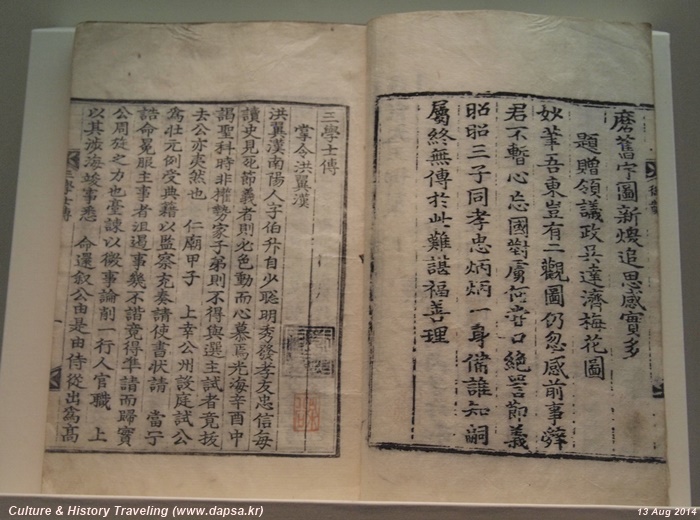 磨舊字圖新煥追思感實多
題贈領議政吳達濟梅花圖
妙筆吾東豈有二觀圖仍忽感前事辭
君不暫心忘國對虜何嘗口絶罵節義
昭昭三子同孝忠炳炳一身備誰知嗣
屬終無傳於此難諶福善理
三學士傳
掌令洪翼漢
洪翼漢南陽人字伯升自少聰明秀發孝友忠信每
讀史見死節義者則必色動而心慕焉光海辛酉中
謁聖科時非權勢家子弟則不得與選主試者竟拔
去公亦爽然也 仁廟甲子 上幸公州設庭試公
爲壯元例受典籍以監察充奏請使書狀請 當宁
誥命冕服主事者沮遏事幾不諧竟得準請而歸實
公周旋之力也臺諫以微事論削一行人官職 上
以其涉海竣事悉 命還敘公由是由侍從出爲高
三學士傳
Culture & History Traveling (www.dapsa.kr)
13 Aug 2014